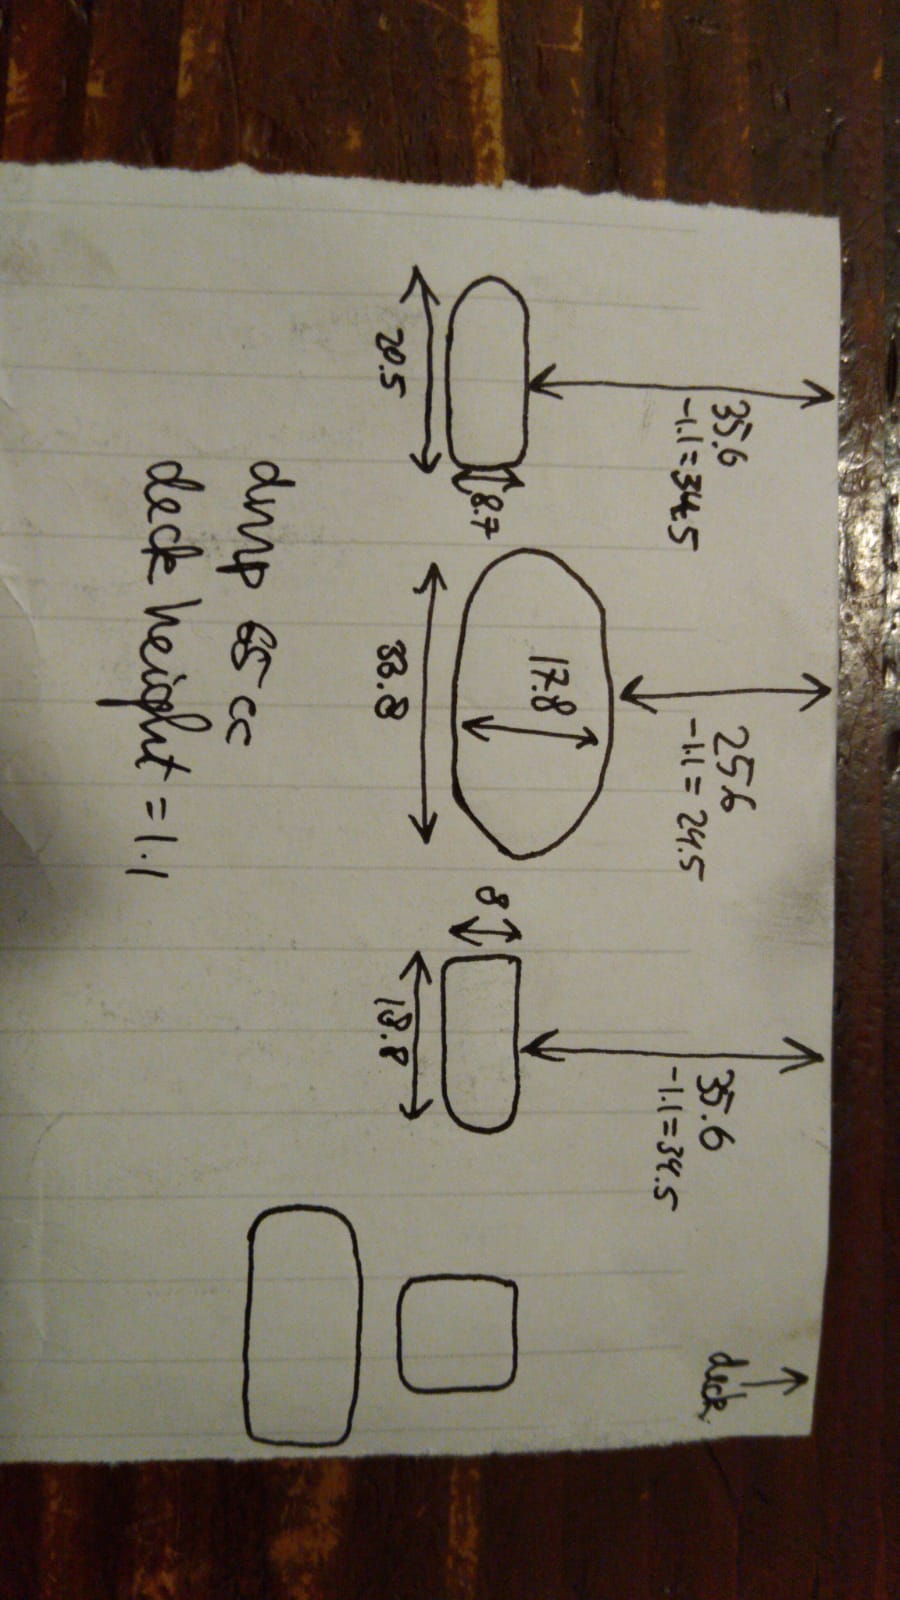 35.6
-1.1=34.5
25.6
-1.1=24.5
35.6
-1.1=34.5
deck
8.7
17.8
8
20.5
33.8
18.8
dmp 65 cc
deck height = 1.1